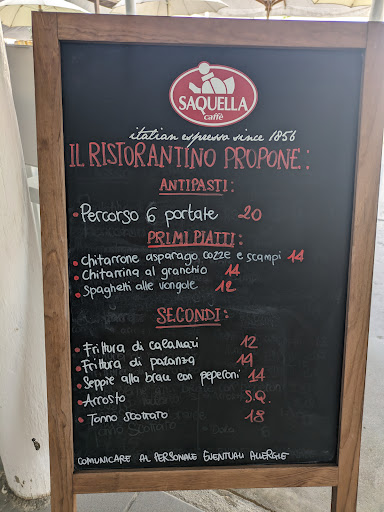 SAQUELLA
caffè
italian espresso since 1856
IL RISTORANTINO PROPONE:
ANTIPASTI:
• Percorso 6 portate 20
PRIMI PIATTI:
• Chitarrone asparago cozze e scampi 14
• Chitarrina al granchio 14
• Spaghetti alle vongole 12
SECONDI:
• Frittura di calamari 12
• Frittura di paranza 14
• Seppie alla brace con peperoni 14
• Arrosto S.Q.
• Tonno scottato 18
COMUNICARE AL PERSONALE EVENTUALI ALLERGIE